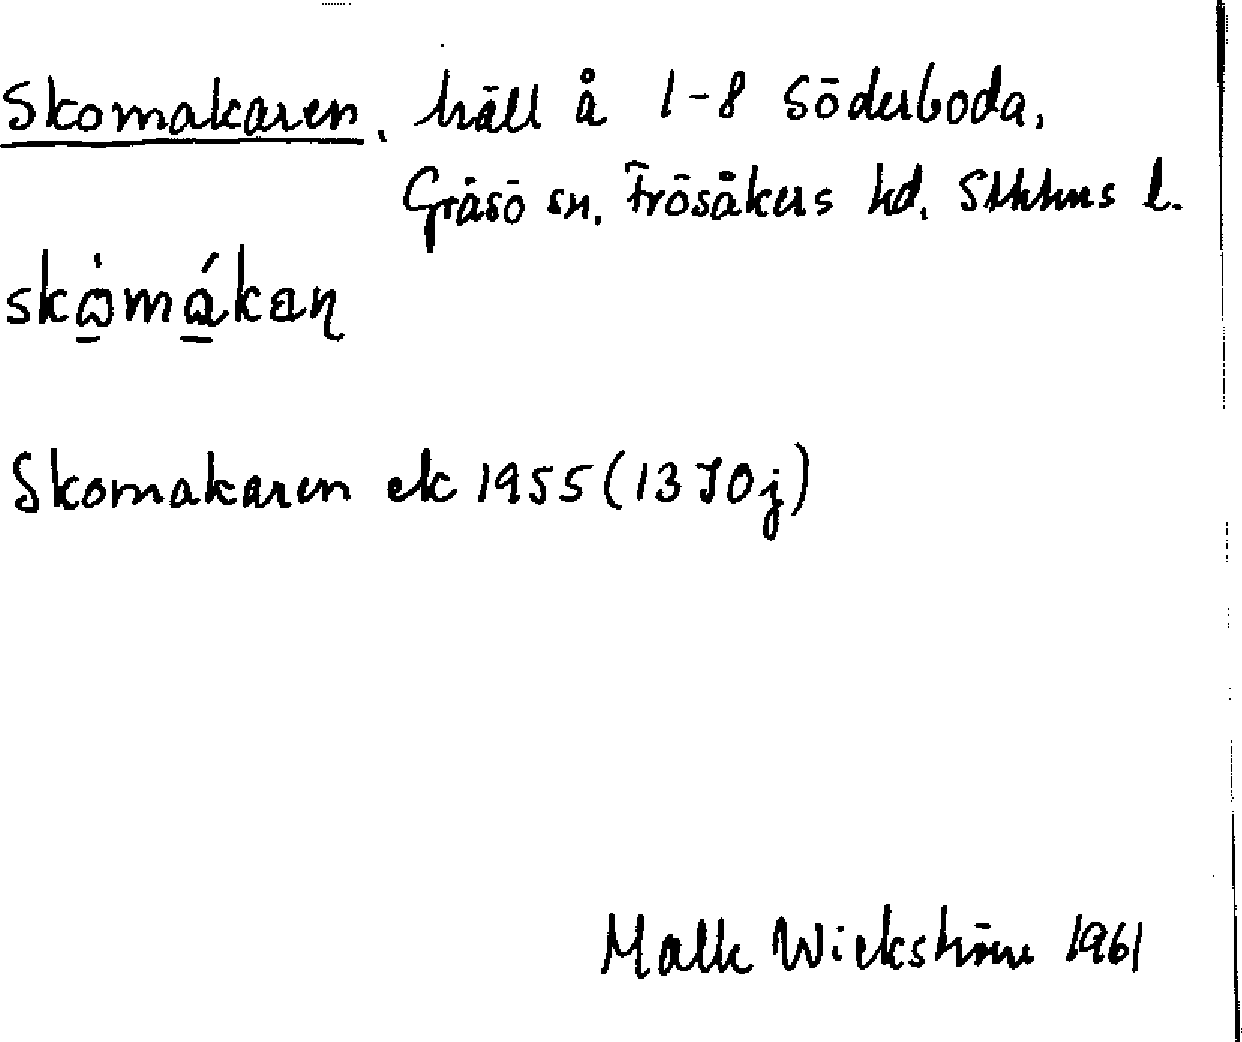 Skomakaren, häll å 1-8 Söderboda,
Gräsö sn. Frösåkers hd. Sthlms l.
Skomakaren ek 1955 (13 I 0 j)
Wickström 1961